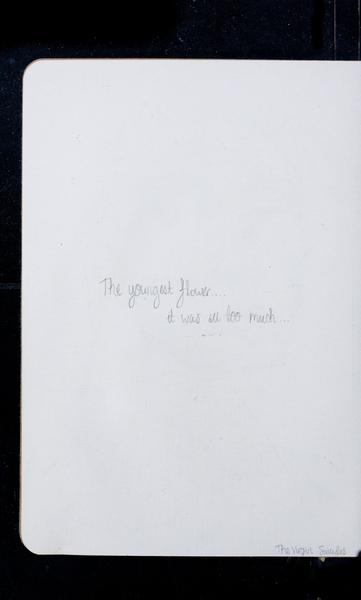 The youngest flower....
it was all too much...
The Virgin Suicides